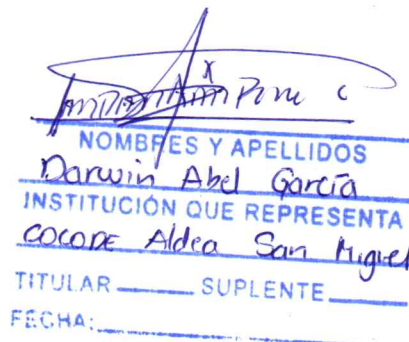 NOMBRES Y APELLIDOS
Darwin Abel García
INSTITUCIÓN QUE REPRESENTA
COCODE Aldea San Miguel
TITULAR SUPLENTE
FECHA: